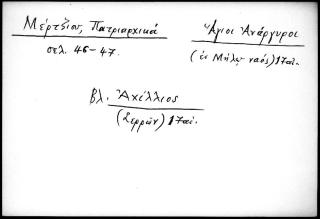 Μέρτζιου, Πατριαρχικά
σελ. 46-47.
Ἅγιοι Ἀνάργυροι
(ἐν Μήλῳ ναός) 17 αἰ.
βλ. Ἀχίλλιος
(Σερρῶν) 17 αἰ.